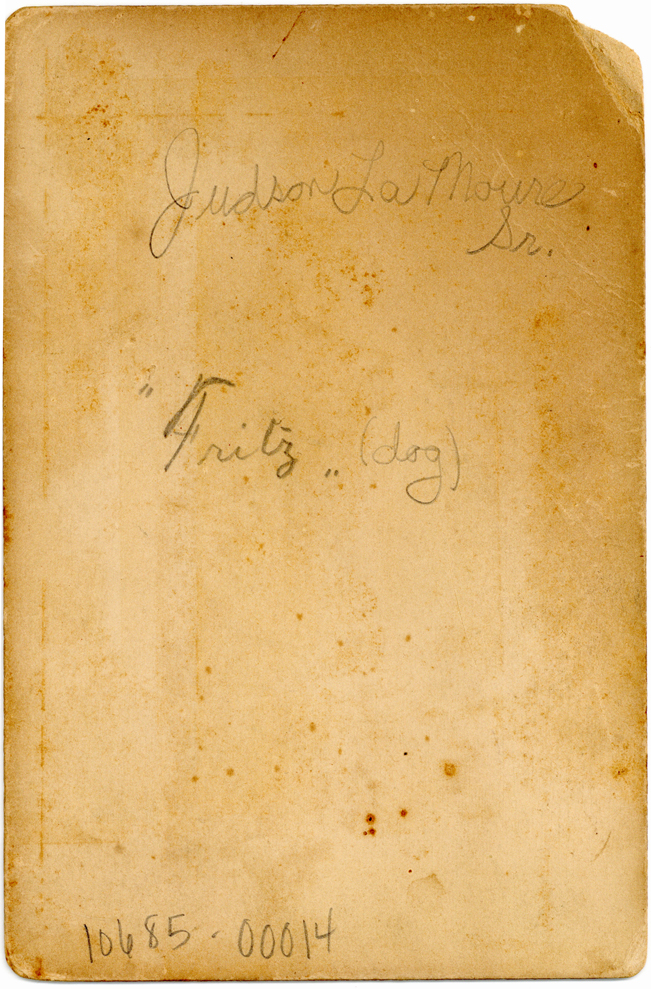 Judson La Moure
Sr.
"Fritz„ (dog)
10685-00014